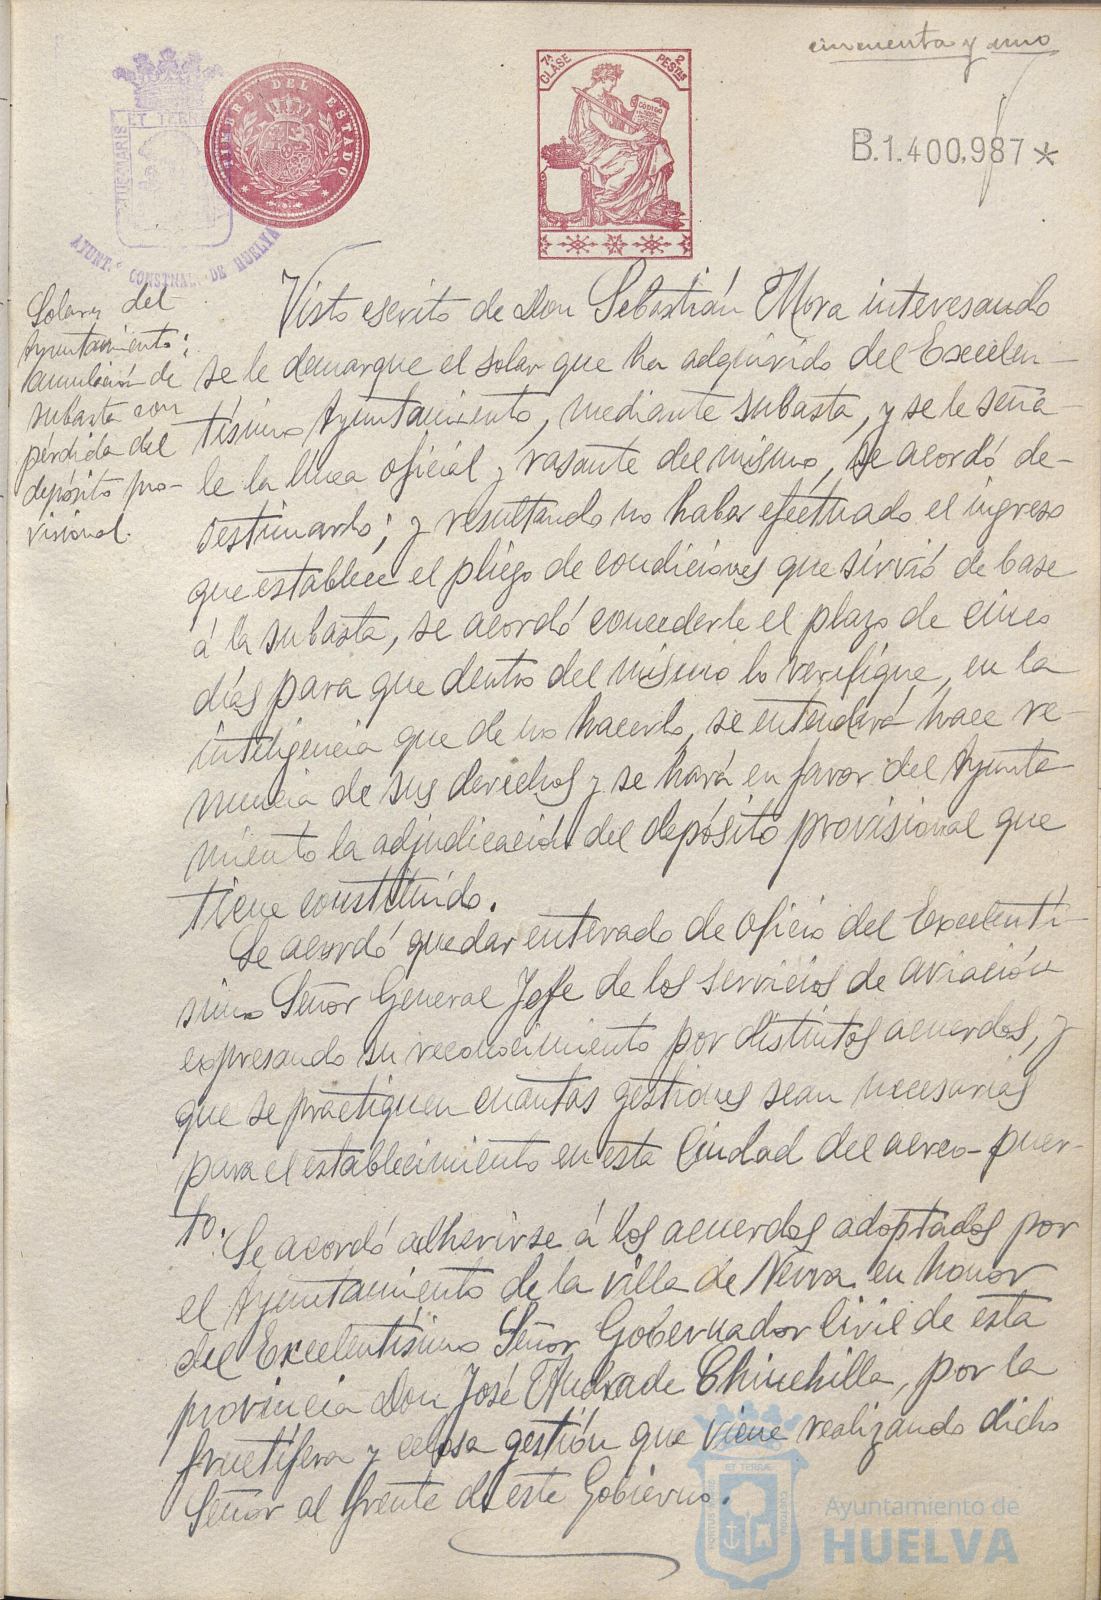 cincuenta y uno
TIMBRE DEL ESTADO
7ª CLASE
2 PESTAS
CÓDIGO
B.1.400.987 *
ET TERRAE
AYUNT.º CONSTNAL. DE HUELVA
Solares del
Ayuntamiento;
anulación de
subasta con
pérdida del
depósito pro-
visional.
Visto escrito de Don Sebastián Mora interesando
se le demarque el solar que ha adquirido del Excelen-
tísimo Ayuntamiento, mediante subasta, y se le seña-
le la línea oficial y rasante del mismo, se acordó de-
sestimarlo; y resultando no haber efectuado el ingreso
que establece el pliego de condiciones que sirvió de base
á la subasta, se acordó concederle el plazo de cinco
días para que dentro del mismo lo verifique, en la
inteligencia que de no hacerlo, se entenderá hace re-
nuncia de sus derechos y se hará en favor del Ayunta
miento la adjudicación del depósito provisional que
tiene constituído.
Se acordó quedar enterado de oficio del Excelentí-
simo Señor General Jefe de los servicios de aviación
expresando su reconocimiento por distintos acuerdos, y
que se practiquen cuantas gestiones sean necesarias
para el establecimiento en esta Ciudad del aereo-puer-
to.
Se acordó adherirse á los acuerdos adoptados por
el Ayuntamiento de la villa de Nerva en honor
del Excelentísimo Señor Gobernador Civil de esta
provincia Don José Andrade Chinchilla, por la
fructífera y celosa gestión que viene realizando dicho
Señor al frente de este Gobierno.
ET TERRÆ
Ayuntamiento de
HUELVA